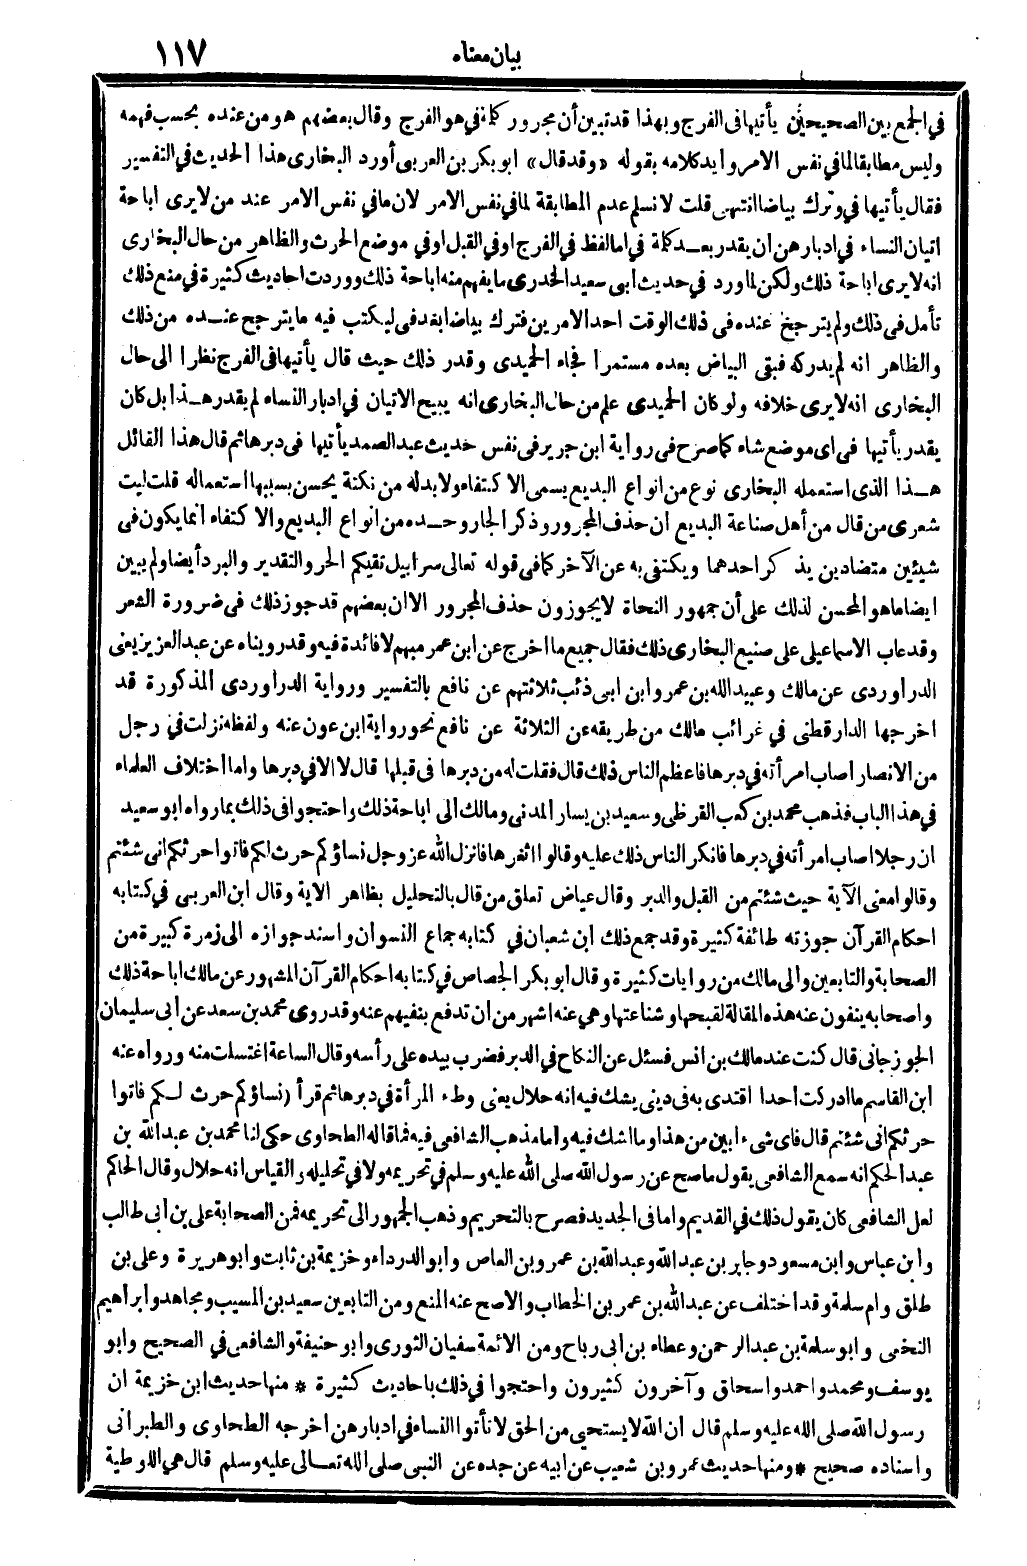 بيان معناه ١١٧
في الجمع بين الصحيحين يأتيها في الفرج وبهذا قد تبين أن مجرور كلمة في هو الفرج وقال بعضهم هو من عنده بحسب فهمه
وليس مطابقا لما في نفس الامر وأيد كلامه بقوله «وقد قال» ابو بكر بن العربى أورد البخارى هذا الحديث في التفسير
فقال يأتيها في وترك بياضا انتهى قلت لا نسلم عدم المطابقة لما في نفس الامر لان ما في نفس الامر عند من لا يرى اباحة
اتيان النساء في ادبارهن ان يقدر بعد كلمة في اما لفظ في الفرج او في القبل او في موضع الحرث والظاهر من حال البخارى
انه لا يرى اباحة ذلك ولكن لما ورد في حديث أبى سعيد الخدرى ما يفهم منه اباحة ذلك ووردت احاديث كثيرة في منع ذلك
تأمل في ذلك ولم يترجح عنده فى ذلك الوقت احد الامرين فترك بياضا بعد فى ليكتب فيه ما يترجح عنده من ذلك
والظاهر انه لم يدركه فبقى البياض بعده مستمرا فجاء الحميدى وقدر ذلك حيث قال يأتيها فى الفرج نظرا الى حال
البخارى انه لا يرى خلافه ولو كان الحميدى علم من حال البخارى انه يبيح الاتيان في ادبار النساء لم يقدر هذا بل كان
يقدر يأتيها فى اى موضع شاء كما صرح فى رواية ابن جرير فى نفس حديث عبد الصمد يأتيها فى دبرها ثم قال هذا القائل
هذا الذى استعمله البخارى نوع من انواع البديع يسمى الاكتفاء ولا بد له من نكتة يحسن بسببها استعماله قلت ليت
شعرى من قال من أهل صناعة البديع ان حذف المجرور وذكر الجار وحده من انواع البديع والاكتفاء انما يكون فى
شيئين متضادين يذكر احدهما ويكتفى به عن الآخر كما فى قوله تعالى سرابيل تقيكم الحر والتقدير والبرد أيضا ولم يبين
ايضا ما هو المحسن لذلك على أن جمهور النحاة لا يجوزون حذف المجرور الا ان بعضهم قد جوز ذلك فى ضرورة الشعر
وقد عاب الاسماعيلى على صنيع البخارى ذلك فقال جميع ما اخرج عن ابن عمر مبهم لا فائدة فيه وقد رويناه عن عبد العزيز يعنى
الدراوردى عن مالك وعبيد الله بن عمر وابن ابى ذئب ثلاثتهم عن نافع بالتفسير ورواية الدراوردى المذكورة قد
اخرجها الدارقطنى في غرائب مالك من طريقه عن الثلاثة عن نافع نحو رواية ابن عون عنه ولفظه نزلت في رجل
من الانصار أصاب امرأته في دبرها فاعظم الناس ذلك قال فقلت له من دبرها فى قبلها قال لا الا في دبرها واما اختلاف العلماء
في هذا الباب فذهب محمد بن كعب القرظى وسعيد بن يسار المدنى ومالك الى اباحة ذلك واحتجوا فى ذلك بما رواه ابو سعيد
ان رجلا اصاب امرأته في دبرها فانكر الناس ذلك عليه وقالوا اثفرها فانزل الله عز وجل نساؤكم حرث لكم فاتوا حرثكم انى شئتم
وقالوا معنى الآية حيث شئتم من القبل والدبر وقال عياض تعلق من قال بالتحليل بظاهر الاية وقال ابن العربى في كتابه
احكام القرآن جوزته طائفة كثيرة وقد جمع ذلك ابن شعبان في كتابه جماع النسوان واسند جوازه الى زمرة كبيرة من
الصحابة والتابعين والى مالك من روايات كثيرة وقال ابو بكر الجصاص في كتابه احكام القرآن المشهور عن مالك اباحة ذلك
واصحابه ينفون عنه هذه المقالة لقبحها وشناعتها وهي عنه اشهر من ان تدفع بنفيهم عنه وقد روى محمد بن سعد عن أبى سليمان
الجوزجانى قال كنت عند مالك بن انس فسئل عن النكاح في الدبر فضرب بيده على رأسه وقال الساعة اغتسلت منه ورواه عنه
ابن القاسم ما ادركت احدا اقتدى به فى دينى يشك فيه انه حلال يعنى وطء المرأة في دبرها ثم قرأ (نساؤكم حرث لكم فاتوا
حرثكم انى شئتم قال فاى شىء ابين من هذا وما اشك فيه واما مذهب الشافعى فيه فما قاله الطحاوى حكى لنا محمد بن عبد الله بن
عبد الحكم انه سمع الشافعى يقول ما صح عن رسول الله صلى الله عليه وسلم في تحريمه ولا في تحليله والقياس انه حلال وقال الحاكم
لعل الشافعى كان يقول ذلك في القديم واما فى الجديد فصرح بالتحريم وذهب الجمهور الى تحريمه فمن الصحابة على بن أبى طالب
وأبن عباس وابن مسعود وجابر بن عبد الله وعبد الله بن عمرو بن العاص وأبو الدرداء وخزيمة بن ثابت وابو هريرة وعلى بن
طلق وام سلمة وقد اختلف عن عبد الله بن عمر بن الخطاب والاصح عنه المنع ومن التابعين سعيد بن المسيب ومجاهد وأبراهيم
النخعى وابو سلمة بن عبد الرحمن وعطاء بن ابى رباح ومن الائمة سفيان الثورى وابو حنيفة والشافعى في الصحيح وابو
يوسف ومحمد واحمد واسحاق وآخرون كثيرون واحتجوا في ذلك باحاديث كثيرة * منها حديث ابن خزيمة ان
رسول الله صلى الله عليه وسلم قال ان الله لا يستحيى من الحق لا تأتوا النساء في ادبارهن اخرجه الطحاوى والطبرانى
واسناده صحيح * ومنها حديث عمرو بن شعيب عن ابيه عن جده عن النبى صلى الله تعالى عليه وسلم قال هي اللوطية